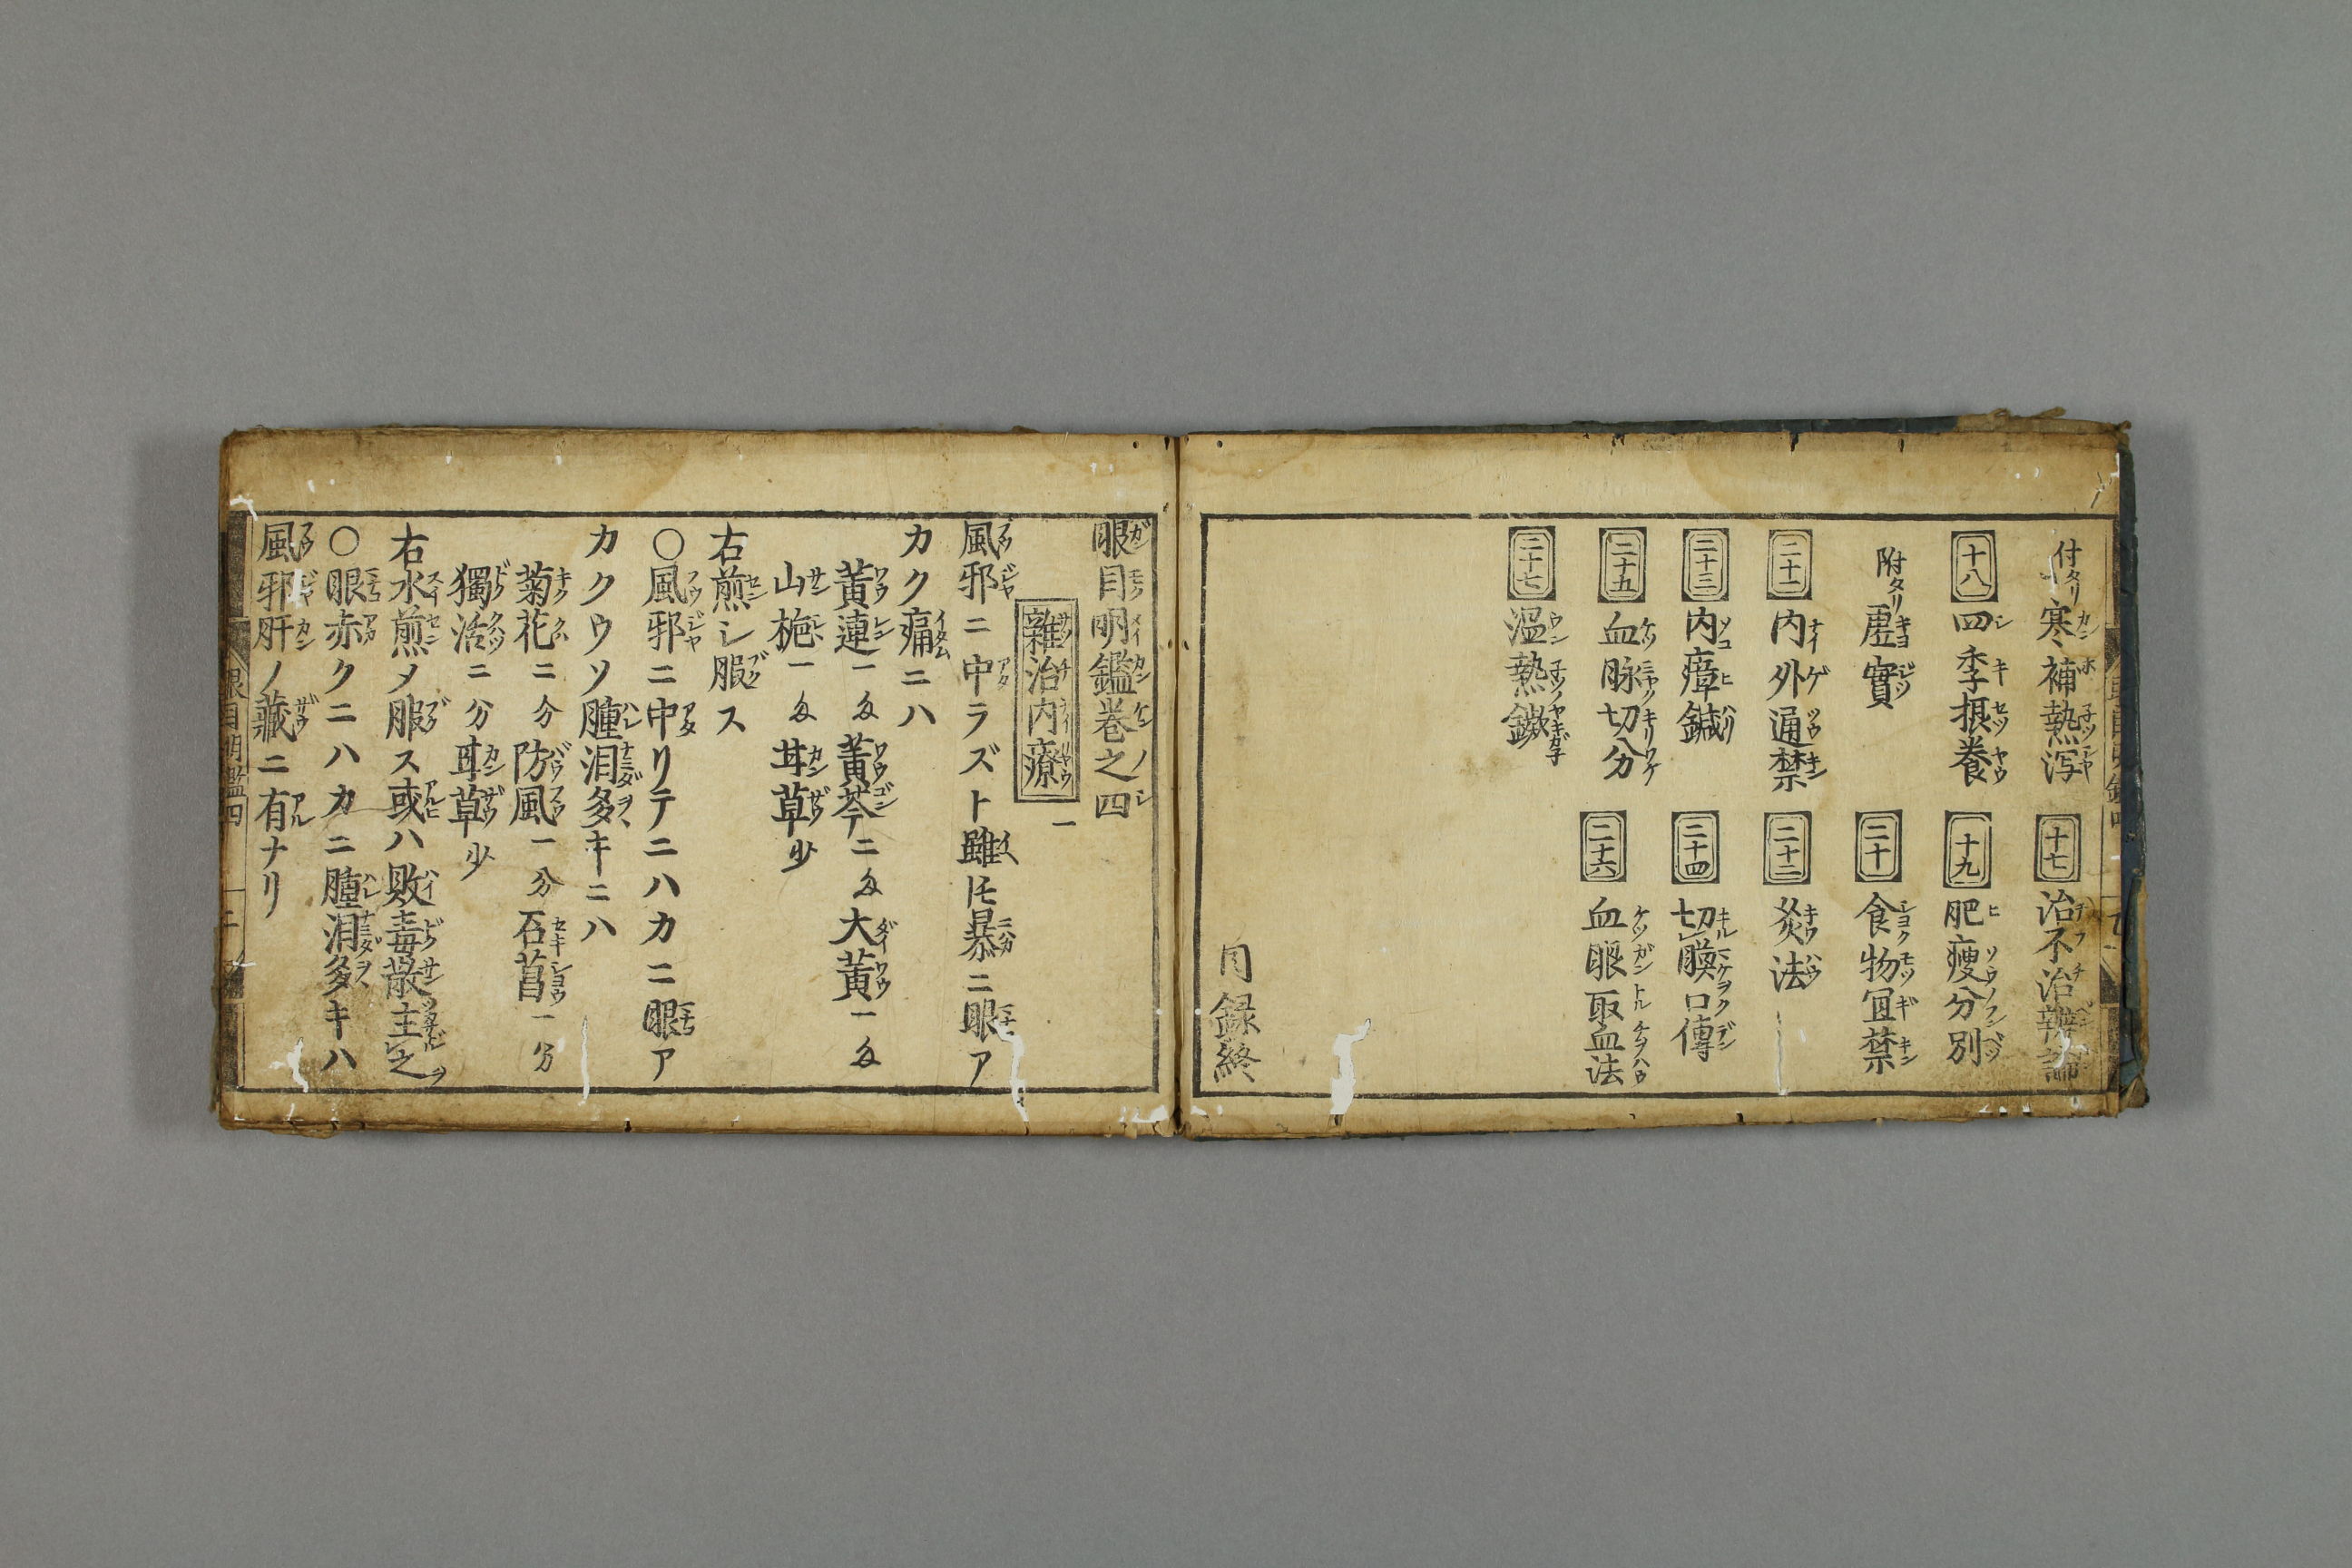 付タリ寒補熱瀉 十七 治不治辨論
十八 四季摂養 十九 肥痩分別
附タリ虚實 二十 食物宜禁
二十一 内外通禁 二十二 灸法
二十三 内瘴鍼 二十四 切瞙口傳
二十五 血脉切分 二十六 血眼取血法
二十七 温熱鍼
目録終
眼目明鑑巻之四
雜治内療 一
風邪ニ中ラズト雖𪜈暴ニ眼ア
カク痛ニハ
黄連一匁 黄芩二匁 大黄一匁
山梔一匁 甘草少
右煎シ服ス
〇風邪ニ中リテニハカニ眼ア
カクウソ腫泪多キニハ
菊花二分 防風一分 石菖一分
獨活二分 甘草少
右水煎メ服ス或ハ敗毒散主之
〇眼赤クニハカニ腫泪多キハ
風邪肝ノ藏ニ有ナリ
眼目明鑑四